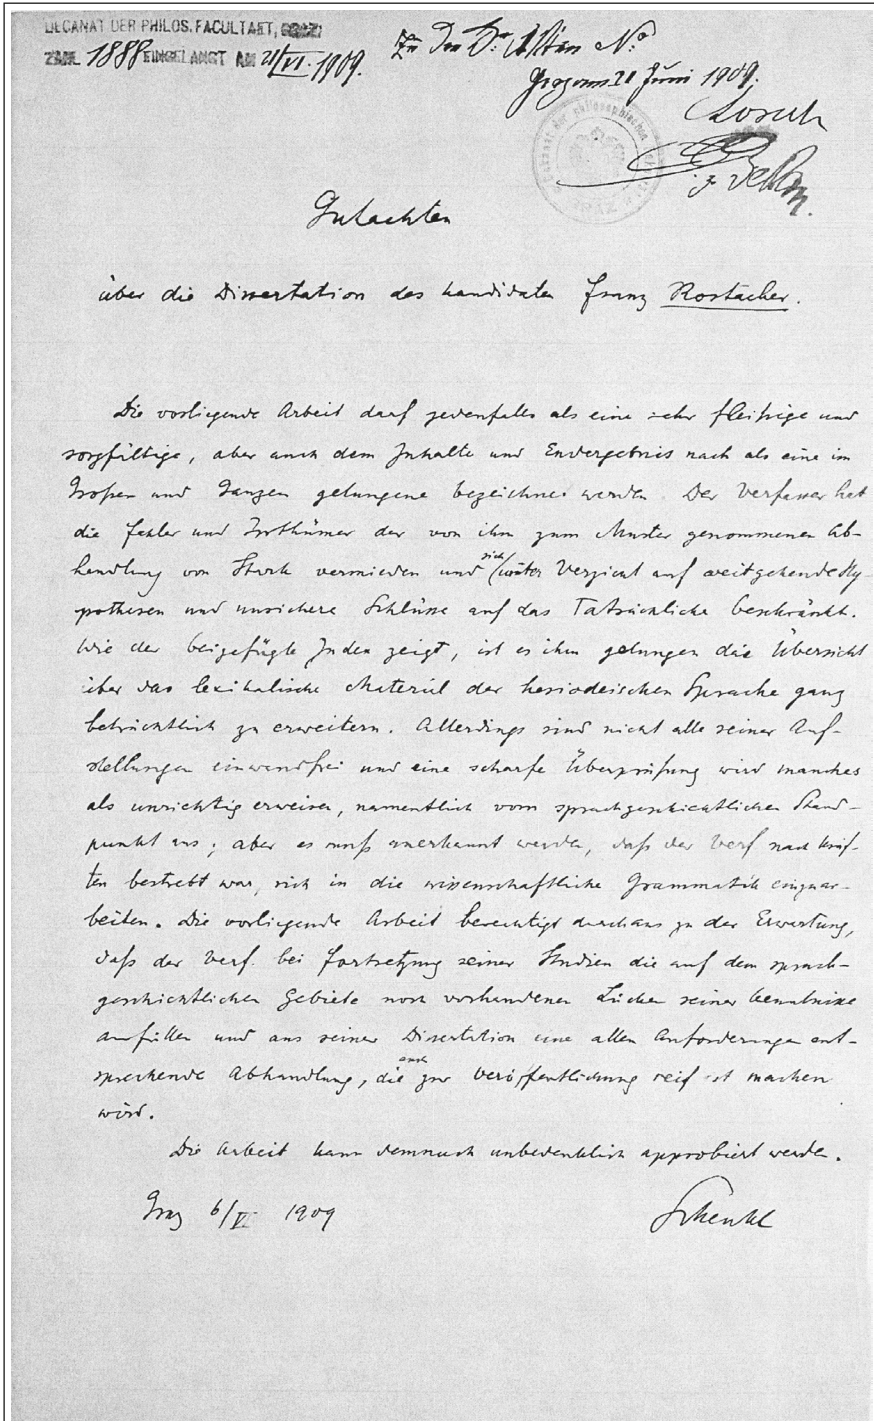 DECANAT DER PHILOS. FACULTAET, GRAZ
ZAHL 1888 EINGELANGT AM 21/VI. 1909.
Zu den Dr. Akten No
Graz am 21 Juni 1909.
Gutachten
über die Dissertation des Kandidaten Franz Rostacher.
Die vorliegende Arbeit darf jedenfalls als eine sehr fleißige und
sorgfältige, aber auch dem Inhalte und Endergebnis nach als eine im
Großen und Ganzen gelungene bezeichnet werden. Der Verfasser hat
die Fehler und Irrthümer der von ihm zum Muster genommenen Ab-
handlung von Sterk vermieden und sich unter Verzicht auf weitgehende Hy-
pothesen und unsichere Schlüsse auf das Tatsächliche beschränkt.
Wie der beigefügte Index zeigt, ist es ihm gelungen die Übersicht
über das lexikalische Material der hesiodeischen Sprache ganz
beträchtlich zu erweitern. Allerdings sind nicht alle seiner Auf-
stellungen einwandfrei und eine scharfe Überprüfung wird manches
als unrichtig erweisen, namentlich vom sprachgeschichtlichen Stand-
punkt aus; aber es muß anerkannt werden, daß der Verf nach Kräf-
ten bestrebt war, sich in die wissenschaftliche Grammatik einzuar-
beiten. Die vorliegende Arbeit berechtigt durchaus zu der Erwartung,
daß der Verf. bei Fortsetzung seiner Studien die auf dem sprach-
geschichtlichen Gebiete noch vorhandenen Lücken seiner Kenntnisse
ausfüllen und aus seiner Dissertation eine allen Anforderungen ent-
sprechende Abhandlung, die auch zur Veröffentlichung reif ist machen
wird.
Die Arbeit kann demnach unbedenklich approbiert werden.
Graz 6/VI 1909
Schenkl